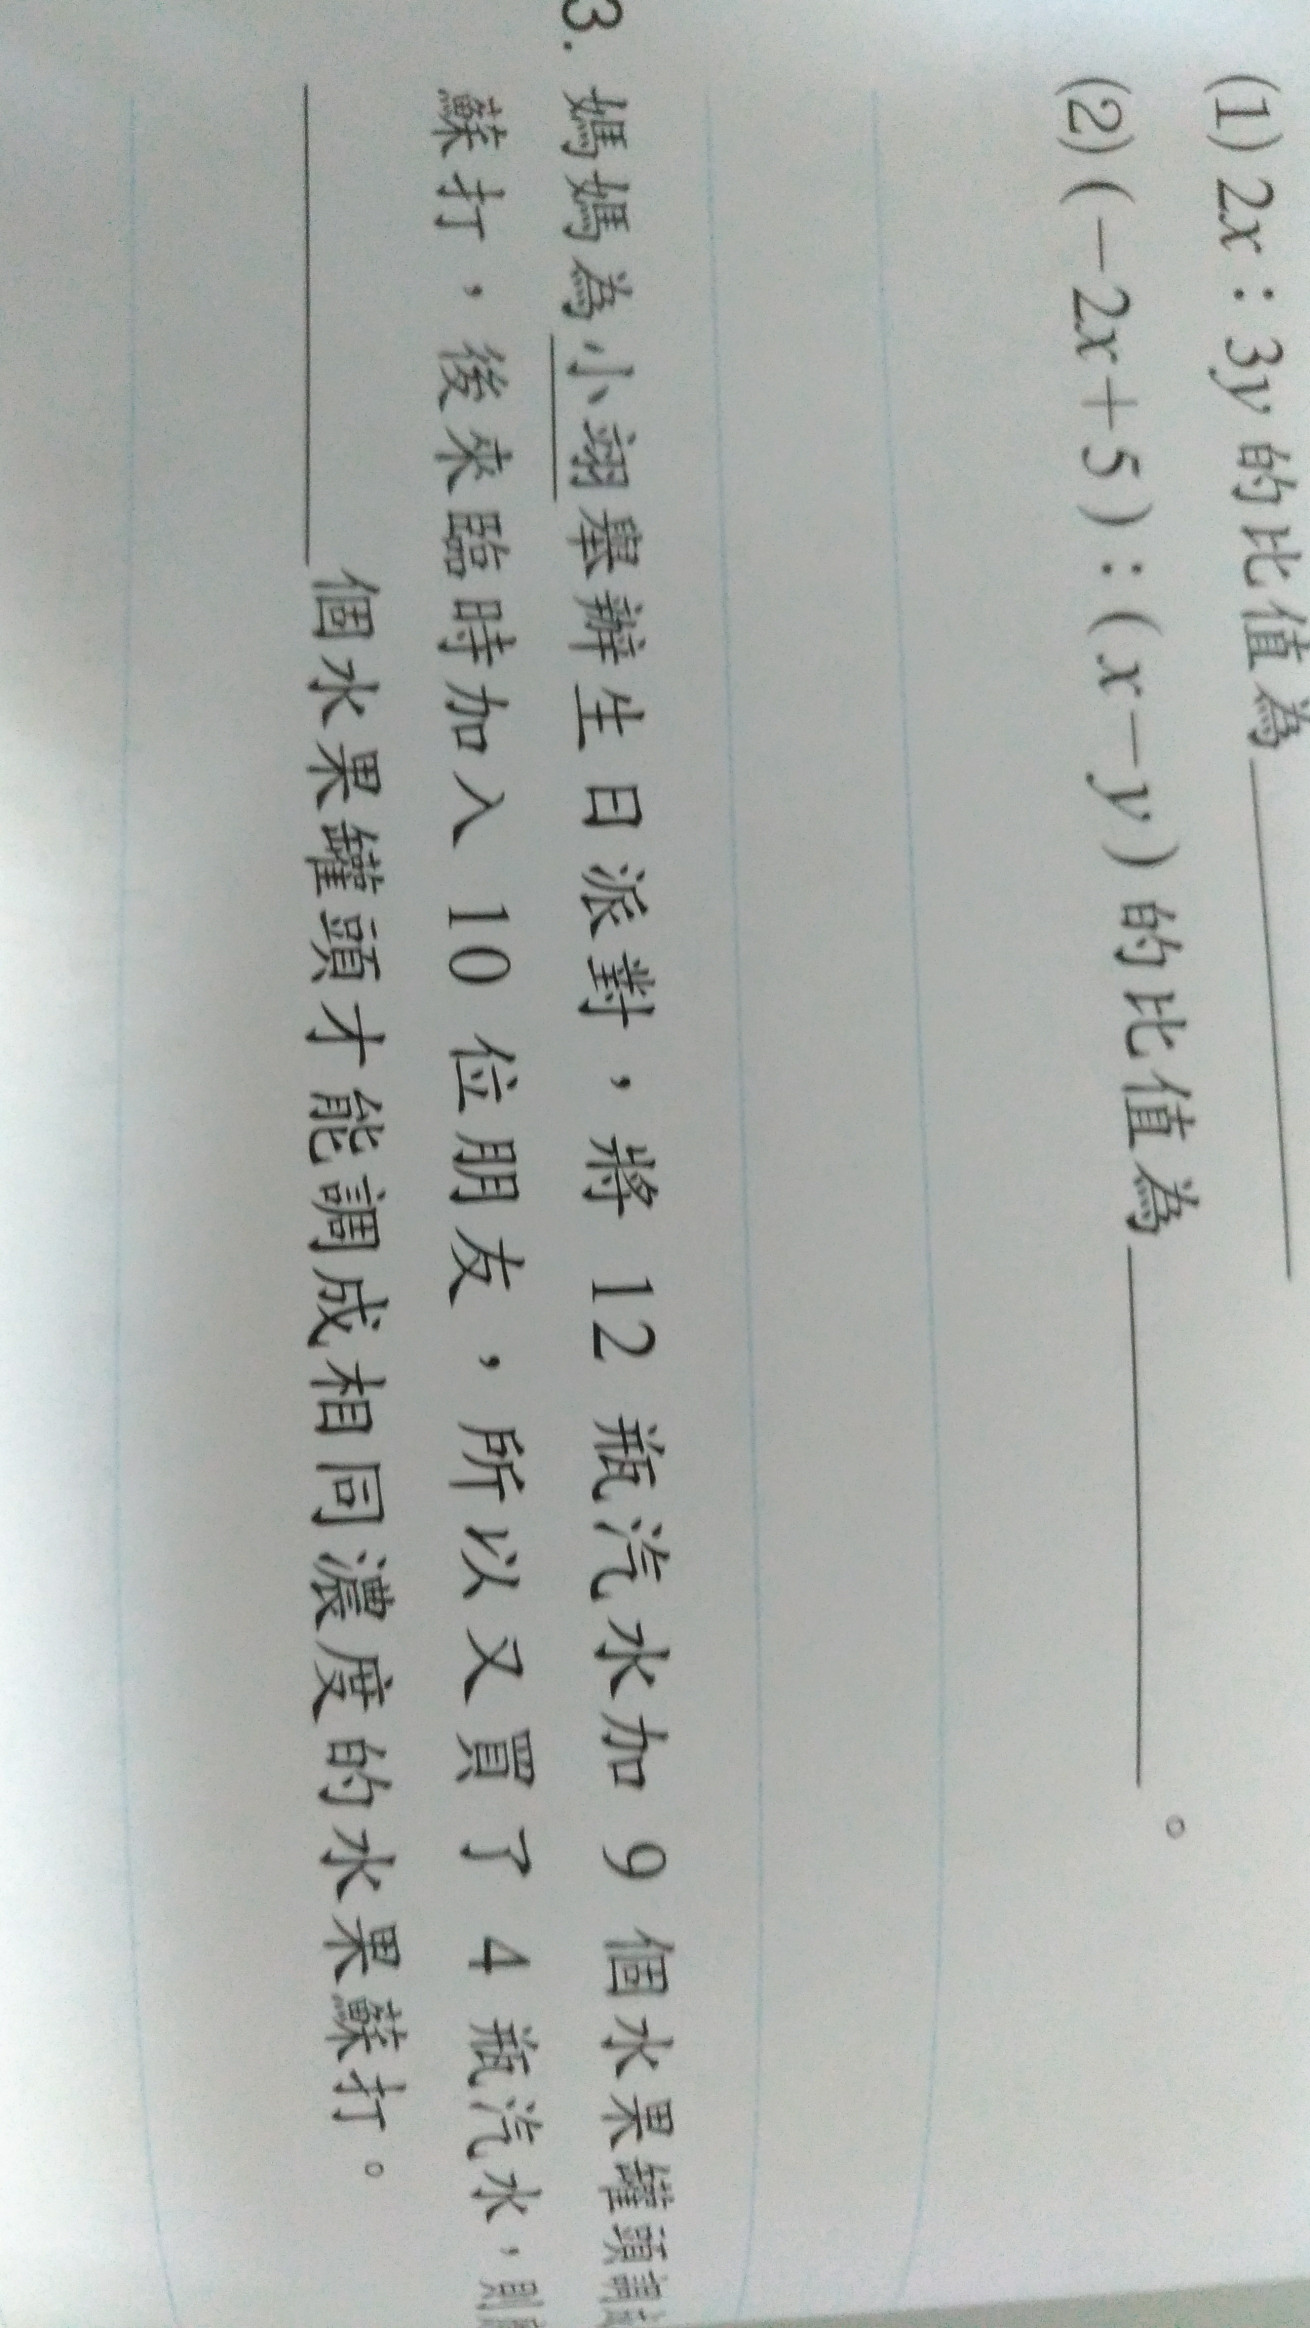 (1) 2x：3y 的比值為
(2) (－2x＋5)：(x－y) 的比值為 。
3. 媽媽為小翊舉辦生日派對，將 12 瓶汽水加 9 個水果罐頭調
蘇打，後來臨時加入 10 位朋友，所以又買了 4 瓶汽水，則
個水果罐頭才能調成相同濃度的水果蘇打。